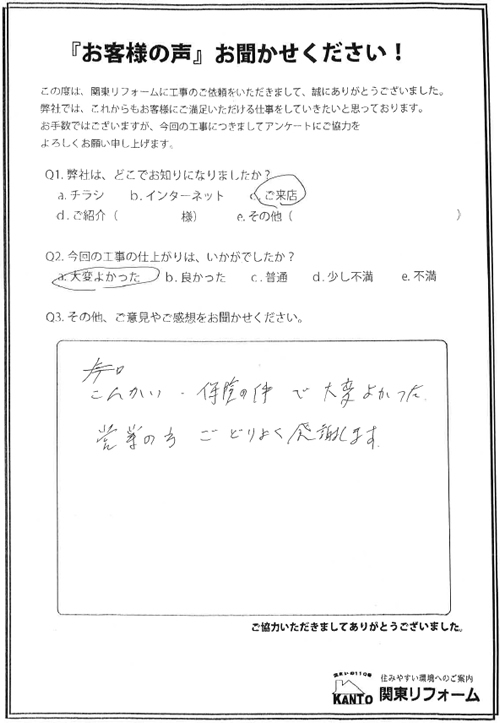 『お客様の声』お聞かせください！
この度は、関東リフォームに工事のご依頼をいただきまして、誠にありがとうございました。
弊社では、これからもお客様にご満足いただける仕事をしていきたいと思っております。
お手数ではございますが、今回の工事につきましてアンケートにご協力を
よろしくお願い申し上げます。
Q1. 弊社は、どこでお知りになりましたか？
a. チラシ　b. インターネット　c. ご来店
d. ご紹介（　　　　様）　e. その他（　　　　）
Q2. 今回の工事の仕上がりは、いかがでしたか？
a. 大変よかった　b. 良かった　c. 普通　d. 少し不満　e. 不満
Q3. その他、ご意見やご感想をお聞かせください。
こんかい・保険の件で大変よかった
営業の方ご どりよく 感謝します
ご協力いただきましてありがとうございました。
住まいの110番
KANTO
住みやすい環境へのご案内
関東リフォーム